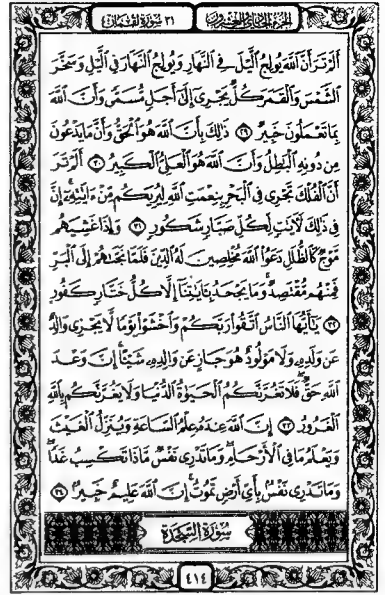 سورة لقمان ٣١ الجزء الحادي والعشرون
أَلَمْ تَرَ أَنَّ ٱللَّهَ يُولِجُ ٱلَّيْلَ فِى ٱلنَّهَارِ وَيُولِجُ ٱلنَّهَارَ فِى ٱلَّيْلِ وَسَخَّرَ
ٱلشَّمْسَ وَٱلْقَمَرَ كُلٌّ يَجْرِىٓ إِلَىٰٓ أَجَلٍ مُّسَمًّى وَأَنَّ ٱللَّهَ
بِمَا تَعْمَلُونَ خَبِيرٌ ﴿٢٩﴾ ذَٰلِكَ بِأَنَّ ٱللَّهَ هُوَ ٱلْحَقُّ وَأَنَّ مَا يَدْعُونَ
مِن دُونِهِ ٱلْبَٰطِلُ وَأَنَّ ٱللَّهَ هُوَ ٱلْعَلِىُّ ٱلْكَبِيرُ ﴿٣٠﴾ أَلَمْ تَرَ
أَنَّ ٱلْفُلْكَ تَجْرِى فِى ٱلْبَحْرِ بِنِعْمَتِ ٱللَّهِ لِيُرِيَكُم مِّنْ ءَايَٰتِهِۦٓ إِنَّ
فِى ذَٰلِكَ لَءَايَٰتٍ لِّكُلِّ صَبَّارٍ شَكُورٍ ﴿٣١﴾ وَإِذَا غَشِيَهُم
مَّوْجٌ كَٱلظُّلَلِ دَعَوُا۟ ٱللَّهَ مُخْلِصِينَ لَهُ ٱلدِّينَ فَلَمَّا نَجَّىٰهُمْ إِلَى ٱلْبَرِّ
فَمِنْهُم مُّقْتَصِدٌ وَمَا يَجْحَدُ بِـَٔايَٰتِنَآ إِلَّا كُلُّ خَتَّارٍ كَفُورٍ
﴿٣٢﴾ يَٰٓأَيُّهَا ٱلنَّاسُ ٱتَّقُوا۟ رَبَّكُمْ وَٱخْشَوْا۟ يَوْمًا لَّا يَجْزِى وَالِدٌ
عَن وَلَدِهِۦ وَلَا مَوْلُودٌ هُوَ جَازٍ عَن وَالِدِهِۦ شَيْـًٔا إِنَّ وَعْدَ
ٱللَّهِ حَقٌّ فَلَا تَغُرَّنَّكُمُ ٱلْحَيَوٰةُ ٱلدُّنْيَا وَلَا يَغُرَّنَّكُم بِٱللَّهِ
ٱلْغَرُورُ ﴿٣٣﴾ إِنَّ ٱللَّهَ عِندَهُۥ عِلْمُ ٱلسَّاعَةِ وَيُنَزِّلُ ٱلْغَيْثَ
وَيَعْلَمُ مَا فِى ٱلْأَرْحَامِ وَمَا تَدْرِى نَفْسٌ مَّاذَا تَكْسِبُ غَدًا
وَمَا تَدْرِى نَفْسٌۢ بِأَىِّ أَرْضٍ تَمُوتُ إِنَّ ٱللَّهَ عَلِيمٌ خَبِيرٌۢ ﴿٣٤﴾
سُورَةُ السَّجْدَةِ
٤١٤